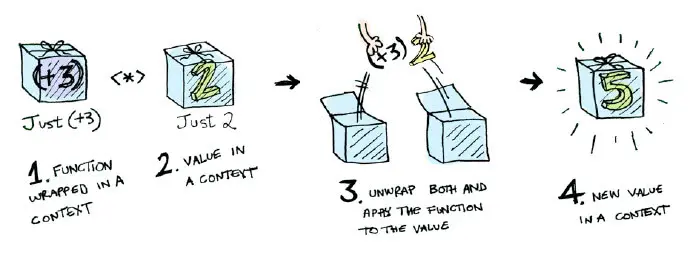 (+3) <*> 2
Just (+3)
Just 2
(+3) 2
5
1. FUNCTION
WRAPPED IN A
CONTEXT
2. VALUE IN
A CONTEXT
3. UNWRAP BOTH AND
APPLY THE FUNCTION
TO THE VALUE
4. NEW VALUE
IN A CONTEXT